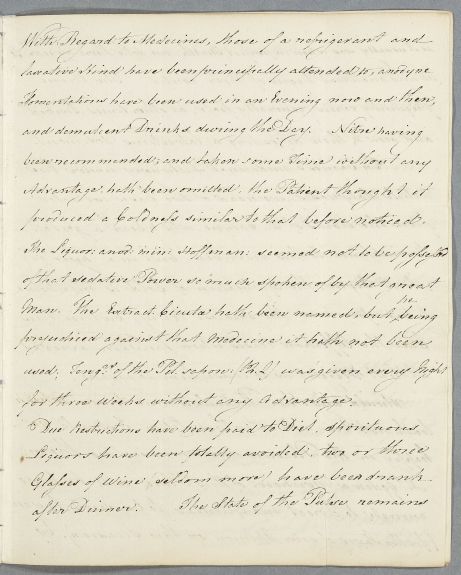 With Regard to Medecines, those of a refrigerant and
laxative Kind have been principally attended to, anodyne
Fomentations have been used in an Evening now and then,
and demulcent Drinks during the Day. Nitre having
been recommended, and taken some Time without any
Advantage, hath been omitted, the Patient thought it
produced a Coldness similar to that before noticed.
The Liquor: anod: min: Hoffman: seemed not to be possessed
of that sedative Power so much spoken of by that great
Man. The Extract. Cicutæ hath been named, but he being
prejudiced against that Medecine it hath not been
used, Ten gr.s of the Pil. sapon: (Ph. L) was given every Night
for three Weeks without any Advantage.
Due Restrictions have been paid to Diet, spirituous
Liquors have been totally avoided, two or three
Glasses of Wine (seldom more) have been drank
after Dinner. The State of the Pulse remains